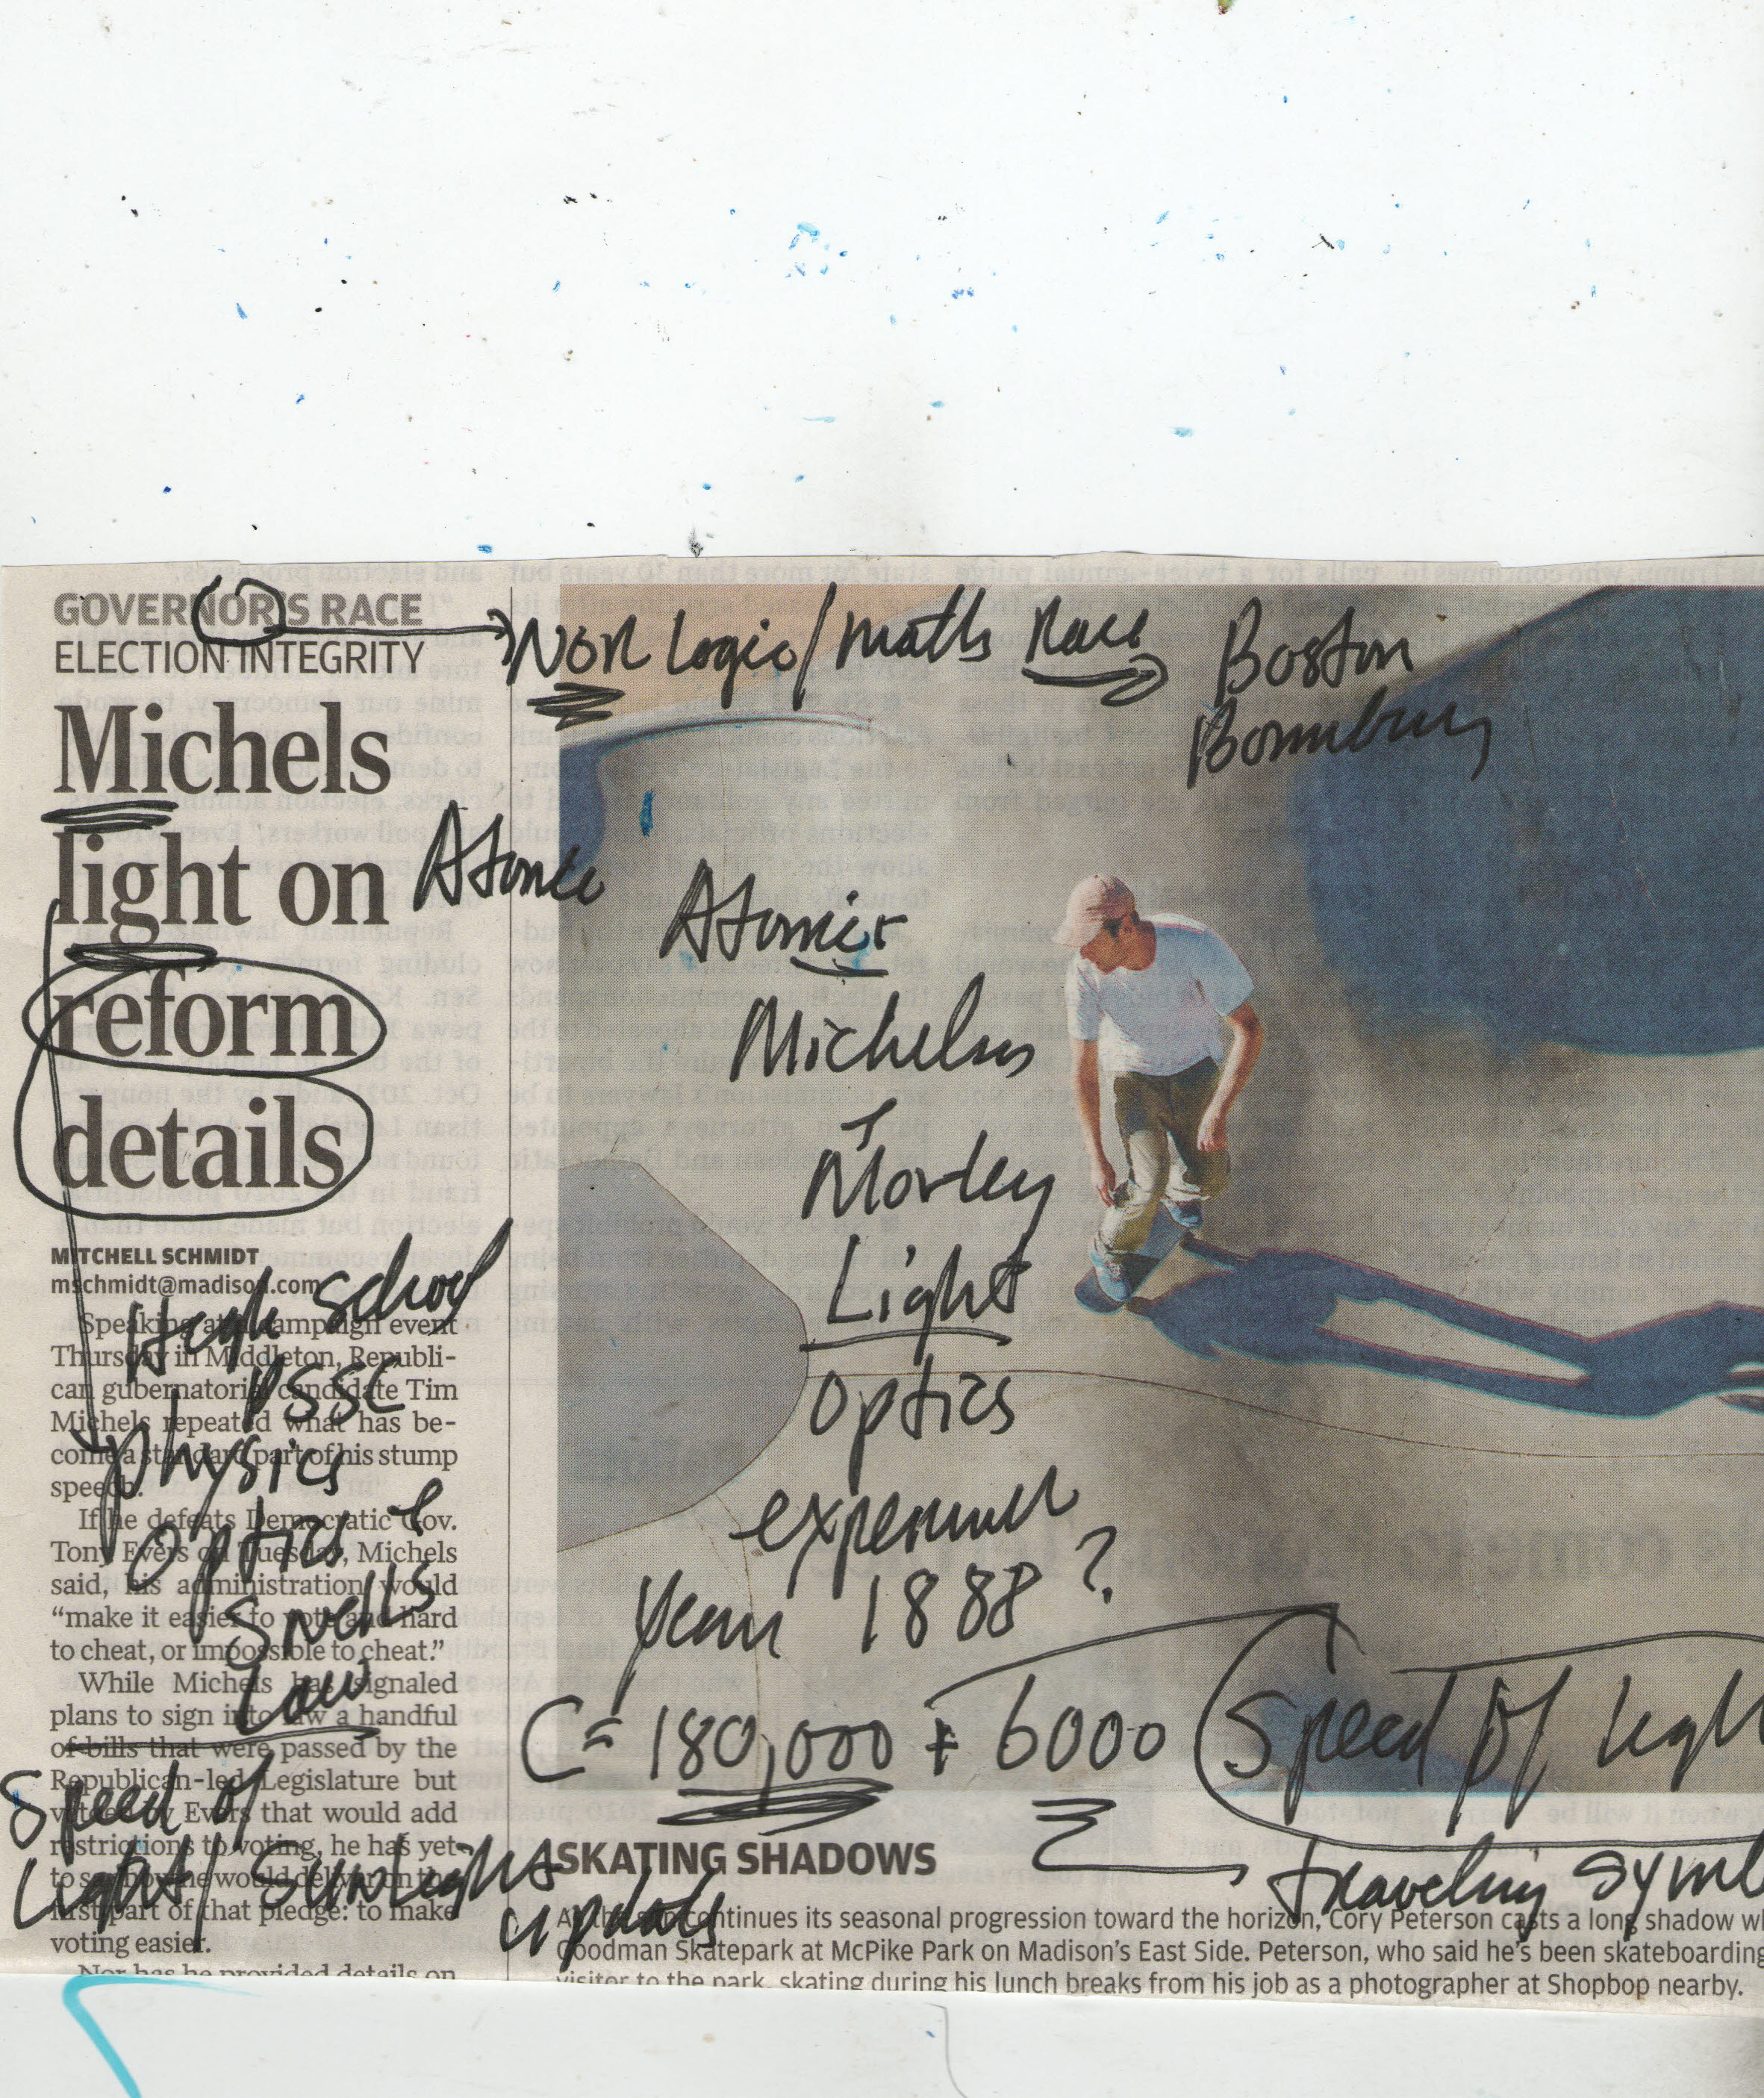 GOVERNOR'S RACE
ELECTION INTEGRITY
Michels
light on
reform
details
MITCHELL SCHMIDT
mschmidt@madison.com
Speaking at a campaign event
Thursday in Middleton, Republi-
can gubernatorial candidate Tim
Michels repeated what has be-
come a standard part of his stump
speech.
If he defeats Democratic Gov.
Tony Evers on Tuesday, Michels
said, his administration would
"make it easier to vote and hard
to cheat, or impossible to cheat."
While Michels has signaled
plans to sign into law a handful
of bills that were passed by the
Republican-led Legislature but
vetoed by Evers that would add
restrictions to voting, he has yet
to say how he would deliver on the
first part of that pledge: to make
voting easier.
Nor has he provided details on
NOR Logic/Maths Race
Boston
Atomic
Michelson
Morley
Light
Optics
experiment
Year 1888?
C = 180,000 + 6000
Speed of Ligh
traveling symb
High School
PSSC
Physics
Optics &
Snells
Law
Speed of
Light/Sunlight
SKATING SHADOWS
As the sun continues its seasonal progression toward the horizon, Cory Peterson casts a long shadow wh
Goodman Skatepark at McPike Park on Madison's East Side. Peterson, who said he's been skateboarding
visitor to the park, skating during his lunch breaks from his job as a photographer at Shopbop nearby.